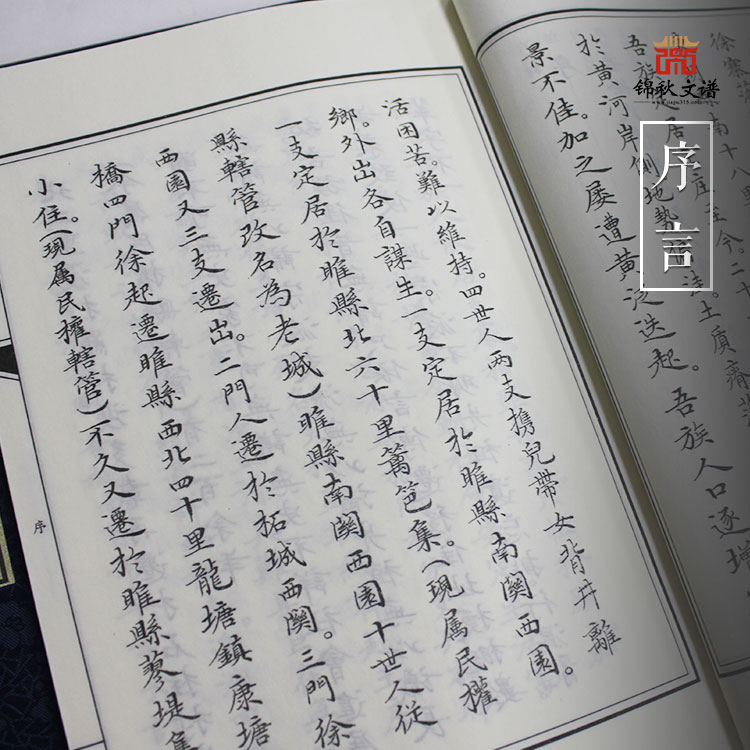 锦秋文谱
www.yupu315.com
序言
於黄河岸側地勢
景不佳。加之屡遭黄泛迭起。吾族人口逐增
活困苦。難以維持。四世人两支携兒帶女背井離
鄉。外出各自謀生。一支定居於睢縣南関西園。
一支定居於睢縣北六十里篱笆集。(現属民權
縣轄管改名為老城)睢縣南関西園十世人從
西園又三支遷出。二門人遷於柘城西関。三門徐
橋四門徐起遷睢縣西北四十里龍塘鎮康塘
小住。(現属民權轄管)不久又遷於睢縣蓼堤集
序